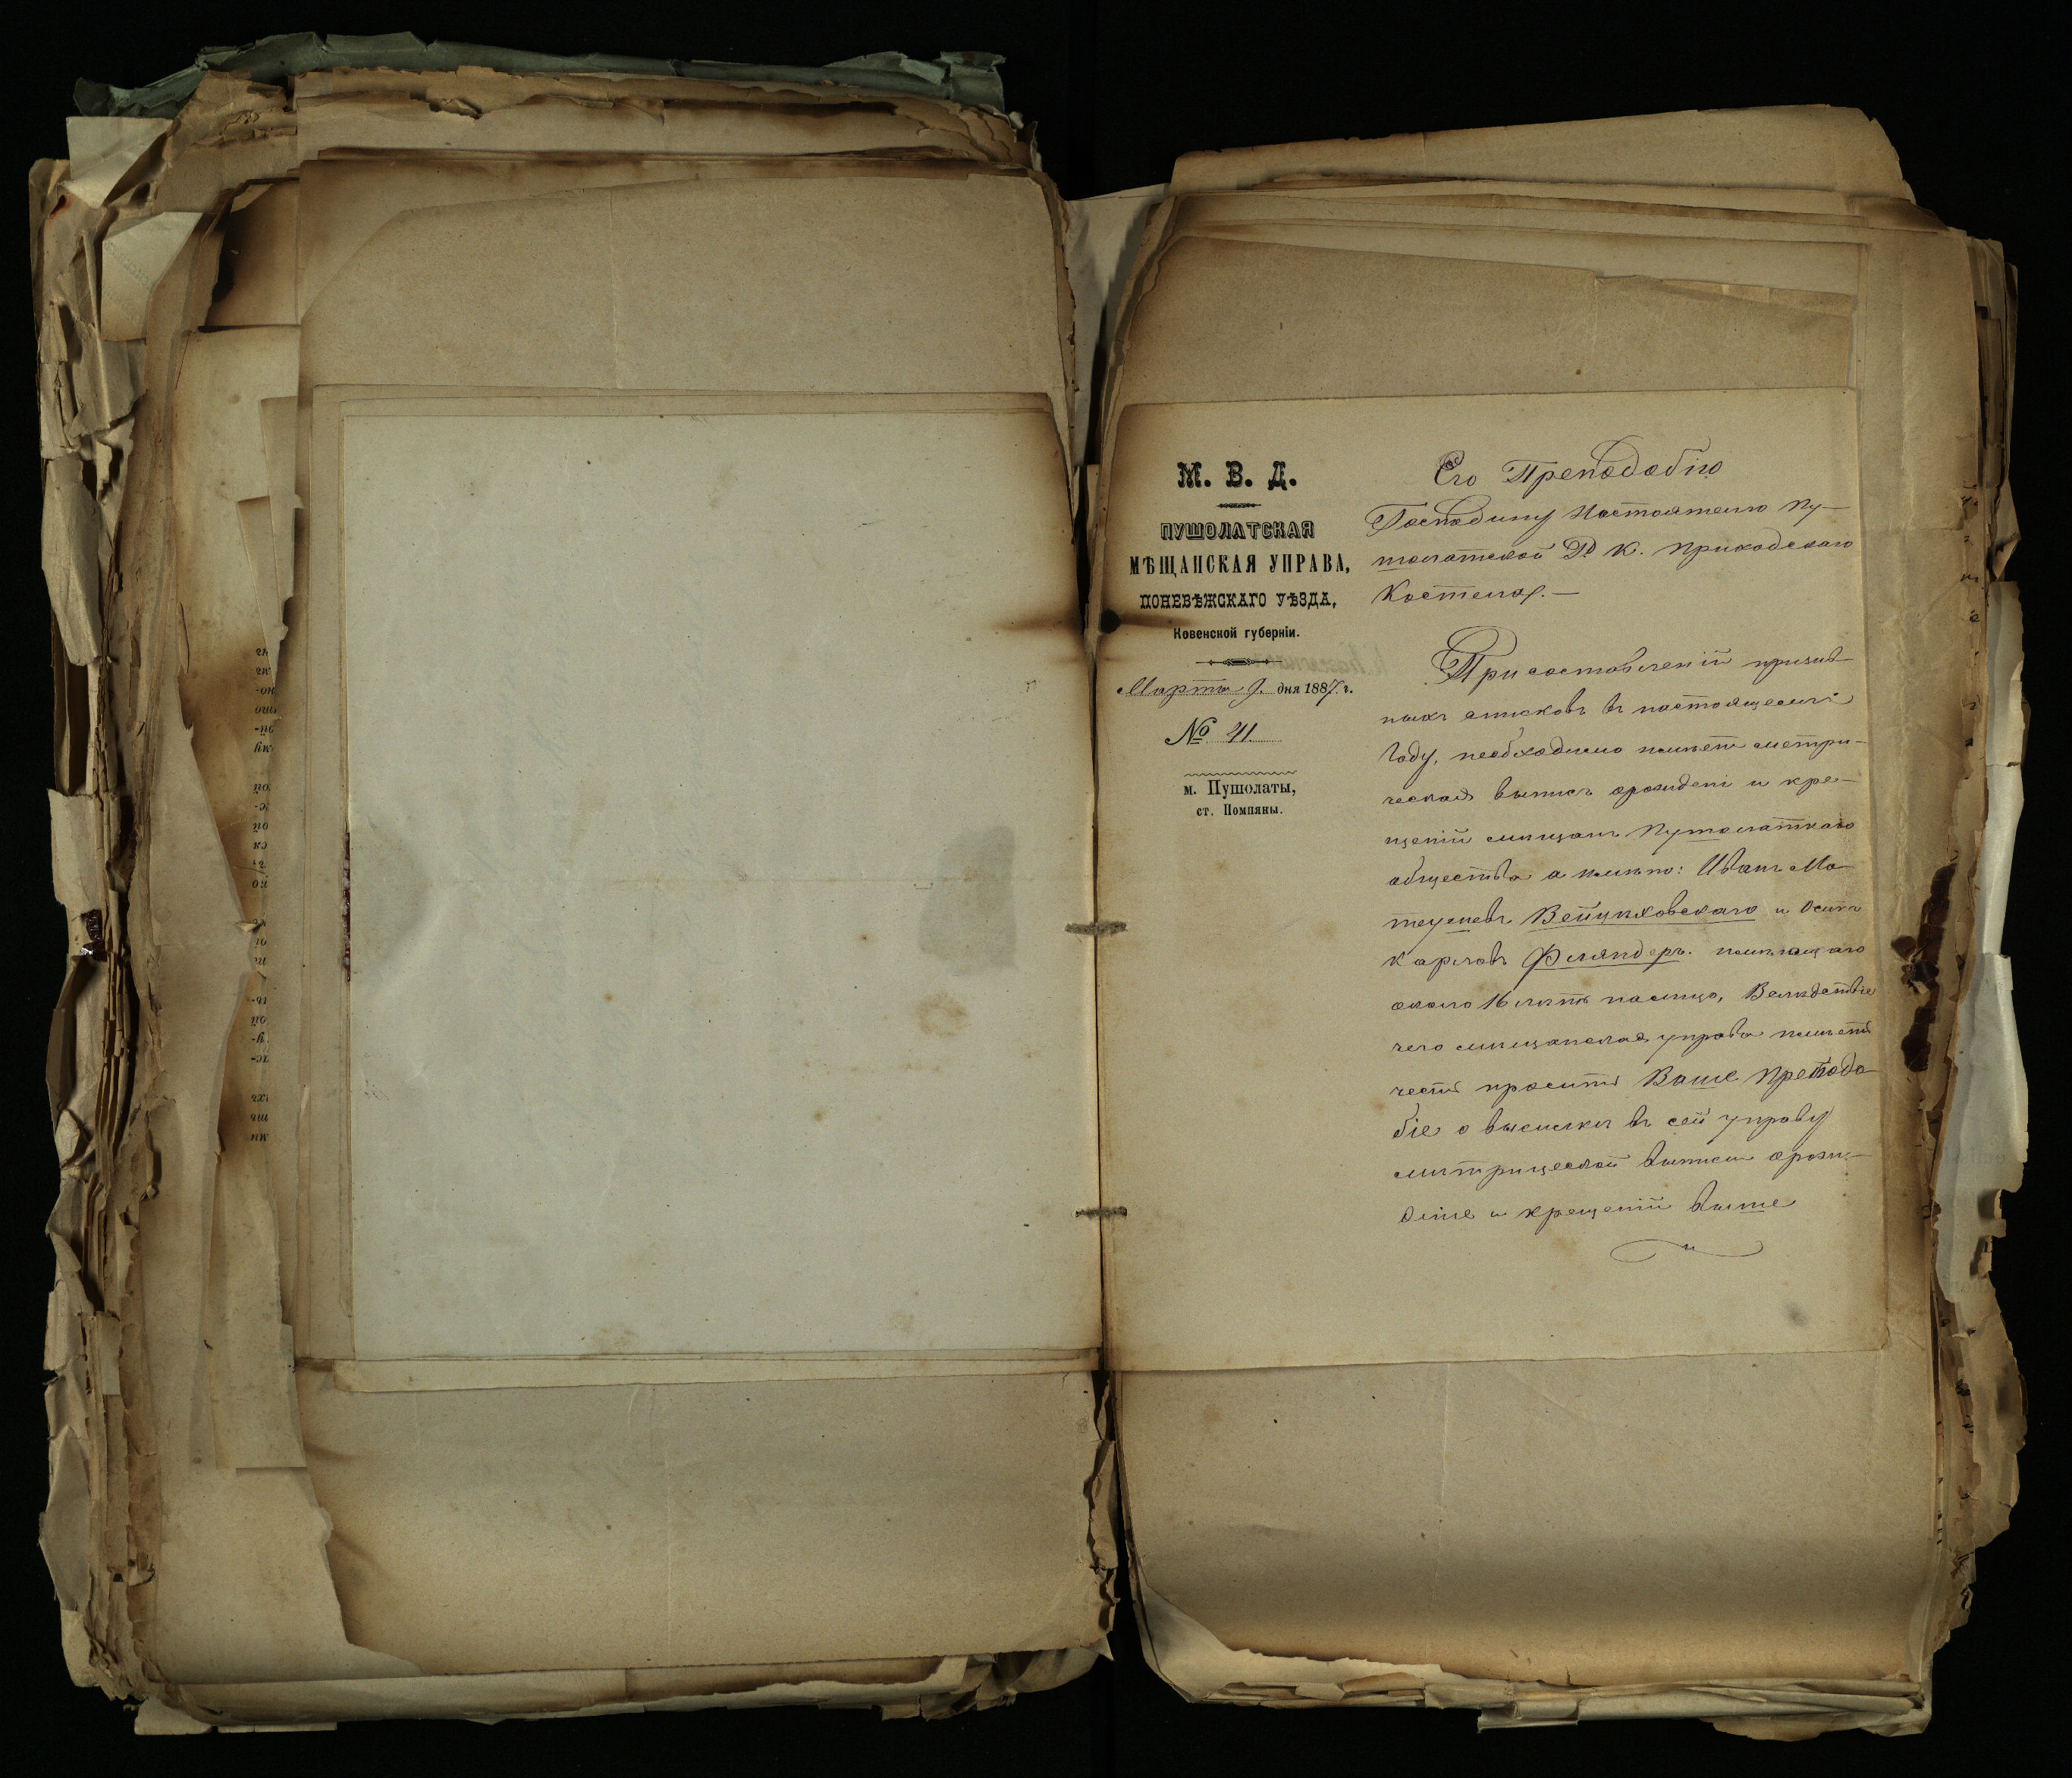 М. В. Д.
ПУШОЛАТСКАЯ
МѢЩАНСКАЯ УПРАВА,
ПОНЕВѢЖСКАГО УѢЗДА,
Ковенской губерніи.
Марта 9. дня 1887. г.
№ 41.
м. Пушолаты,
ст. Помпяны.
Его Преподобію
Господину Настоятелю Пу-
шолатской Р К. приходскаго
Костела.—
При составленіи призыв
ныхъ списковъ въ настоящемъ
году, необходимо имѣть метри-
ческая выпись орождені и кре-
щеніи мѣщанъ Пушолатскаго
общества а имѣно: Иванъ Ма
теушевъ Вейцяховскаго и Осипъ
Карловъ Фляндеръ. имѣющаго
около 16 лѣтъ насищо, Велѣдствіе
чего мѣщанская управа имѣетъ
честь просить Ваше Преподо
біе о высилкѣ въ сей управу
митрической выписи орож-
деніе и крещеніи выше
ой
ой
ск